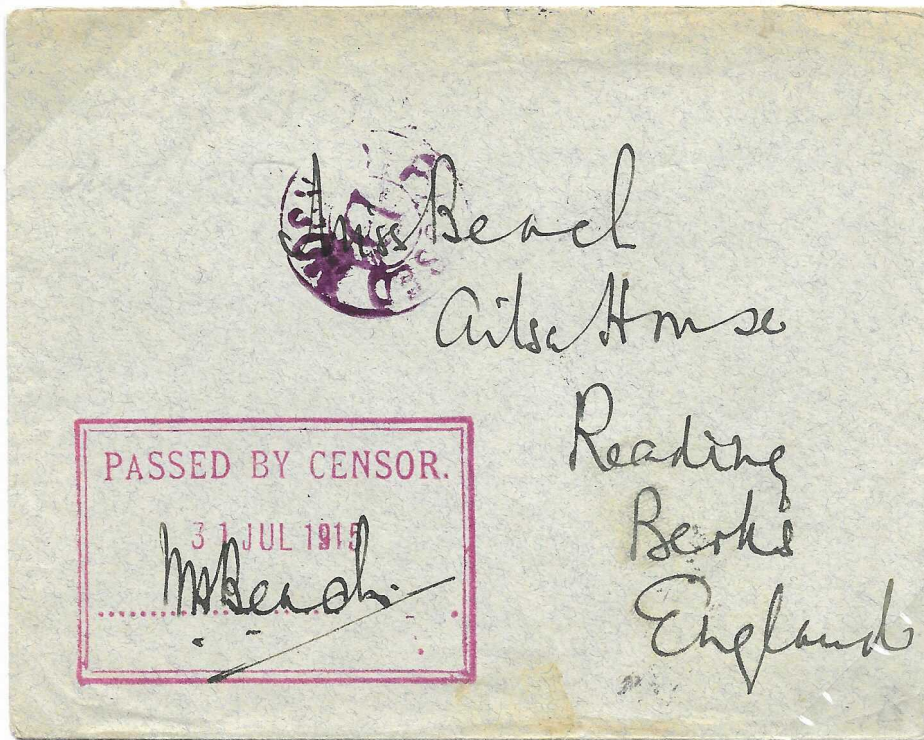 Miss Beach
Ailsa House
Reading
Berks
England
PASSED BY CENSOR.
31 JUL 1915
Beach